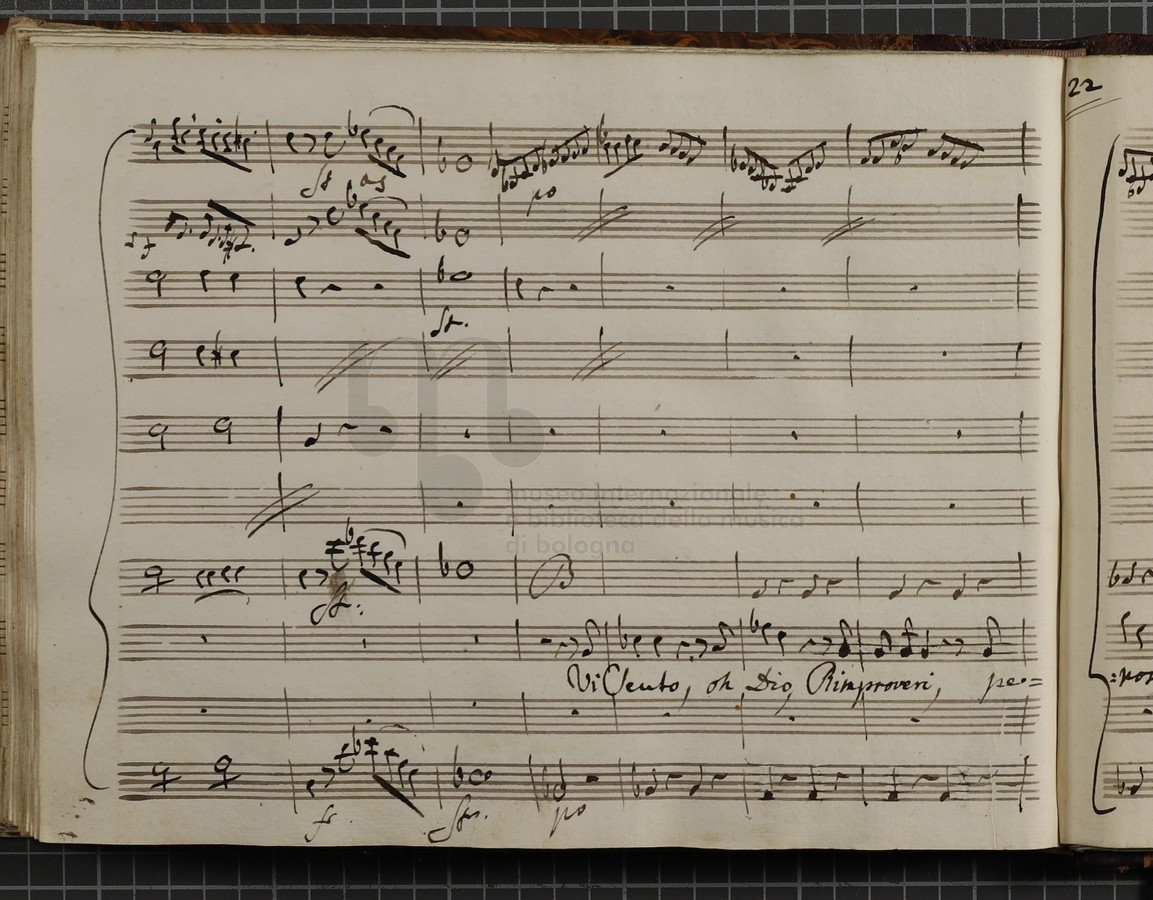 22
po
museo internazionale
e biblioteca della musica
di bologna
Vi Sento, oh Dio, Rimproveri, pe=
po